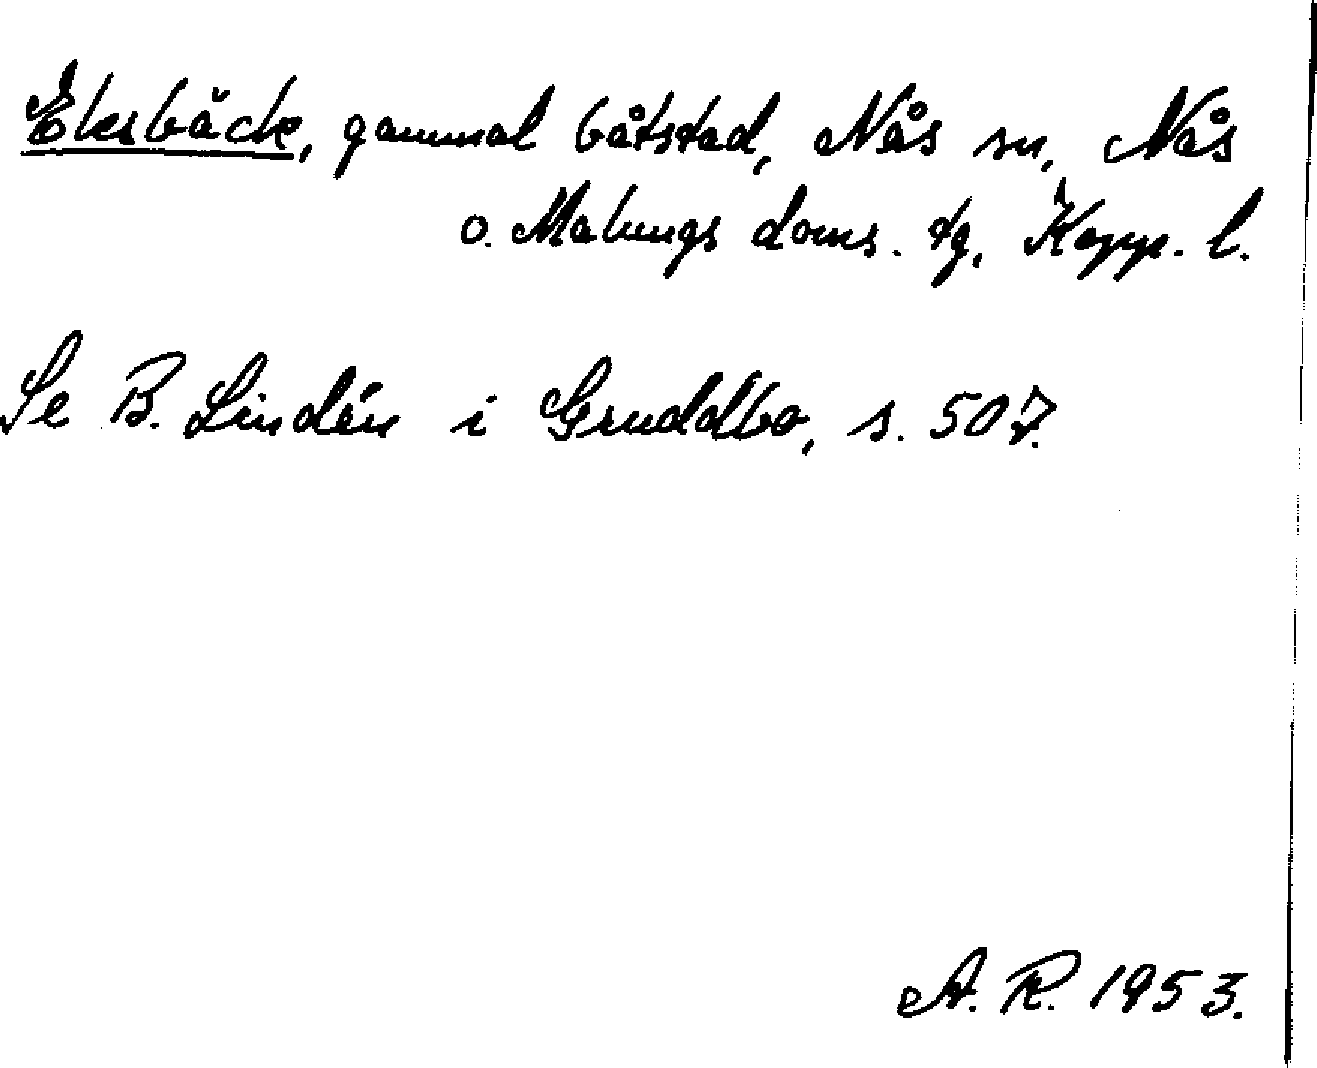 Eksbäck, gammal båtstad, Nås sn, Nås
o. Malungs doms. tg, Kopp. l.
Se B. Lindén i Gruddbo, s. 507.
A. R. 1953.